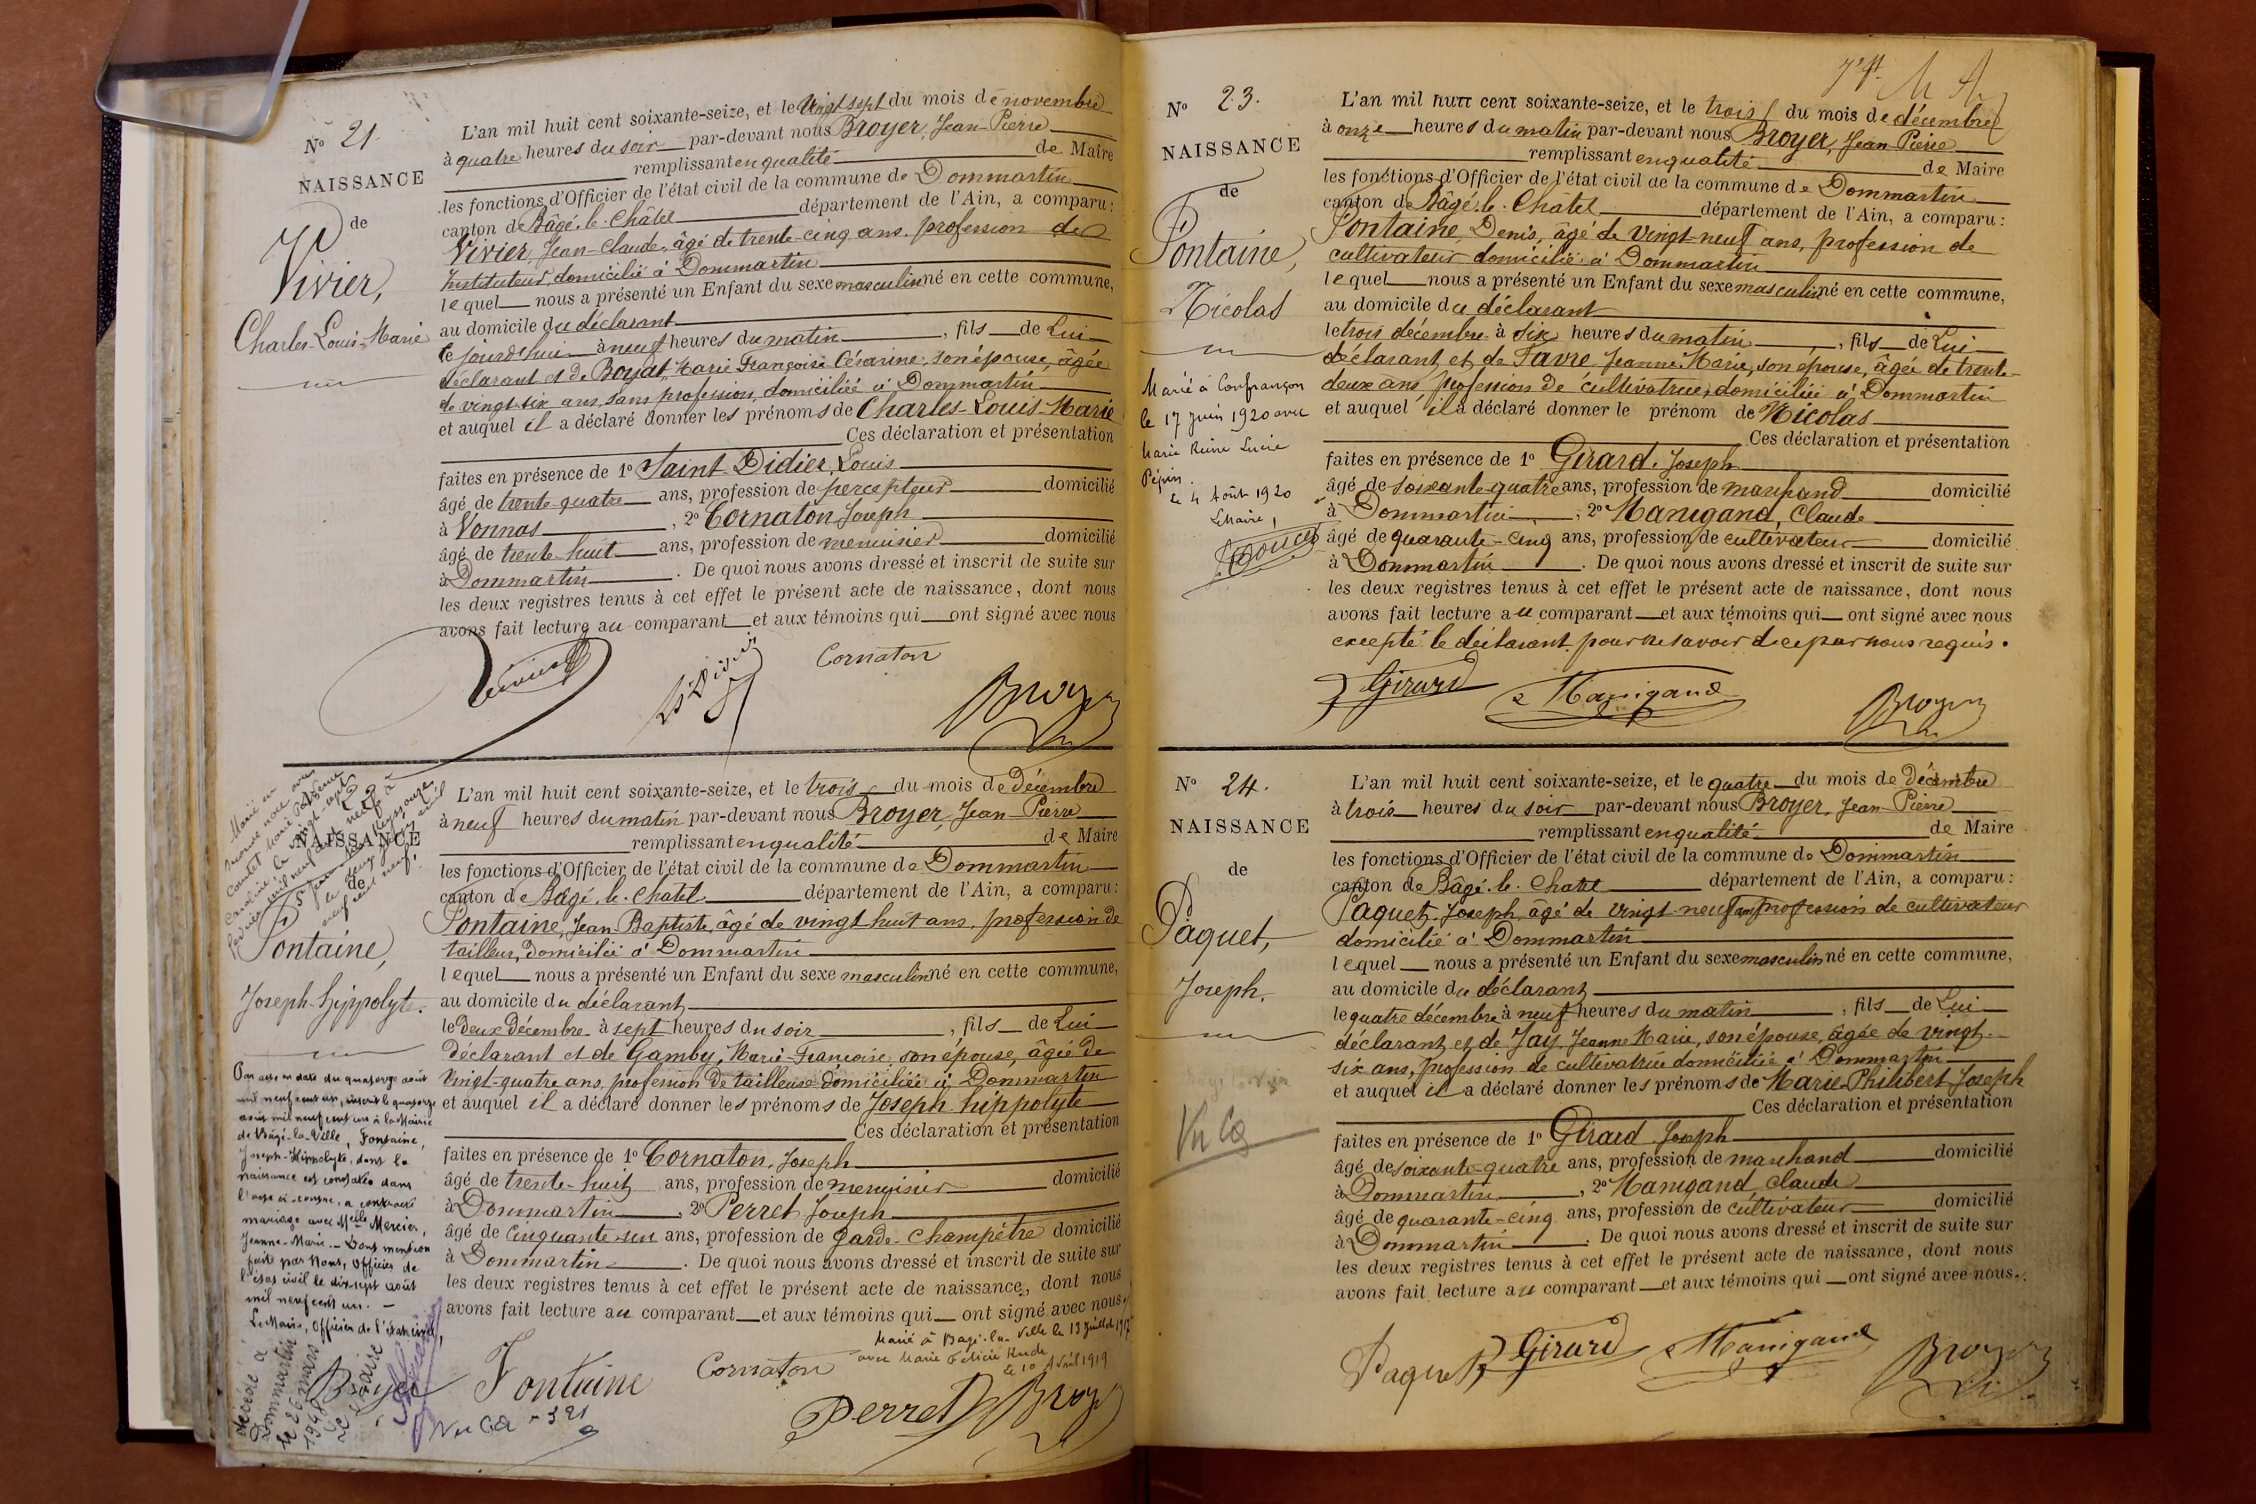 No 21.
NAISSANCE
de
Vivier,
Charles-Louis-Marie
L'an mil huit cent soixante-seize, et le vingt sept du mois de novembre
à quatre heures du soir par-devant nous Broyer, Jean-Pierre
remplissant en qualité de Maire
les fonctions d'Officier de l'état civil de la commune de Dommartin
canton de Bâgé-le-Châtel département de l'Ain, a comparu:
Vivier, Jean-Claude, âgé de trente-cinq ans, profession de
Instituteur, domicilié à Dommartin
lequel nous a présenté un Enfant du sexe masculin né en cette commune,
au domicile du déclarant
le jourd'hui à neuf heures du matin, fils de Lui
déclarant et de Boyat, Marie Françoise Césarine, son épouse, âgée
de vingt-six ans, sans profession, domiciliée à Dommartin
et auquel il a déclaré donner les prénoms de Charles-Louis-Marie
Ces déclaration et présentation
faites en présence de 1o Saint-Didier, Louis
âgé de trente-quatre ans, profession de percepteur domicilié
à Vonnas, 2o Cornaton Joseph
âgé de trente-huit ans, profession de menuisier domicilié
à Dommartin. De quoi nous avons dressé et inscrit de suite sur
les deux registres tenus à cet effet le présent acte de naissance, dont nous
avons fait lecture au comparant et aux témoins qui ont signé avec nous
Vivier
Cornaton
Broyer
22
NAISSANCE
de
Fontaine,
Joseph-hippolyte.
Par acte en date du quatorze août
mil neuf cent un, inscrit le quatorze
août mil neuf cent un à la Mairie
de Bâgé-la-Ville, Fontaine,
Joseph-Hippolyte, dont la
naissance est constatée dans
l'acte ci-contre, a contracté
mariage avec Melle Mercier,
Jeanne-Marie. — Dont mention
faite par Nous, Officier de
l'état civil le dix-sept août
mil neuf cent un. —
Le Maire, Officier de l'état civil,
Broyer
Décédé à
Dommartin
le 26 mars
1948
Le Maire
L'an mil huit cent soixante-seize, et le trois du mois de décembre
à neuf heures du matin par-devant nous Broyer, Jean-Pierre
remplissant en qualité de Maire
les fonctions d'Officier de l'état civil de la commune de Dommartin
canton de Bâgé-le-Chatel département de l'Ain, a comparu:
Fontaine, Jean-Baptiste, âgé de vingt huit ans, profession de
tailleur, domicilié à Dommartin
lequel nous a présenté un Enfant du sexe masculin né en cette commune,
au domicile du déclarant
le deux décembre à sept heures du soir, fils de Lui
déclarant et de Gamby, Marie-Françoise son épouse, âgée de
vingt-quatre ans, profession de tailleuse domiciliée à Dommartin
et auquel il a déclaré donner les prénoms de Joseph hippolyte
Ces déclaration et présentation
faites en présence de 1o Cornaton, Joseph
âgé de trente-huit ans, profession de menuisier domicilié
à Dommartin, 2o Perret Joseph
âgé de cinquante-un ans, profession de garde-champêtre domicilié
à Dommartin. De quoi nous avons dressé et inscrit de suite sur
les deux registres tenus à cet effet le présent acte de naissance, dont nous
avons fait lecture au comparant et aux témoins qui ont signé avec nous.
Marié à Bagé-la-Ville le 13 juillet
avec Marie Félicie
le 10 Avril 1919
Fontaine
Cornaton
Perret
Broyer
No 23.
NAISSANCE
de
Fontaine,
Nicolas
Marié à Confrançon
le 17 Juin 1920 avec
Marie Reine Lucie
Pépin.
le 4 Août 1920
Le Maire,
L'an mil huit cent soixante-seize, et le trois du mois de décembre
à onze heures du matin par-devant nous Broyer, Jean Pierre
remplissant en qualité de Maire
les fonctions d'Officier de l'état civil de la commune de Dommartin
canton de Bâgé-le-Chatel département de l'Ain, a comparu:
Fontaine, Denis, âgé de vingt-neuf ans, profession de
cultivateur domicilié à Dommartin
lequel nous a présenté un Enfant du sexe masculin né en cette commune,
au domicile du déclarant
le trois décembre à six heures du matin, fils de Lui
déclarant et de Favre Jeanne Marie, son épouse, âgée de trente-
deux ans, profession de cultivatrice, domiciliée à Dommartin
et auquel il a déclaré donner le prénom de Nicolas
Ces déclaration et présentation
faites en présence de 1o Girard, Joseph
âgé de soixante-quatre ans, profession de marchand domicilié
à Dommartin, 2o Manigand, Claude
âgé de quarante-cinq ans, profession de cultivateur domicilié
à Dommartin. De quoi nous avons dressé et inscrit de suite sur
les deux registres tenus à cet effet le présent acte de naissance, dont nous
avons fait lecture au comparant et aux témoins qui ont signé avec nous
excepté le déclarant pour ne savoir de ce par nous requis.
Girard
Manigand
Broyer
No 24.
NAISSANCE
de
Paquet,
Joseph.
L'an mil huit cent soixante-seize, et le quatre du mois de décembre
à trois heures du soir par-devant nous Broyer, Jean Pierre
remplissant en qualité de Maire
les fonctions d'Officier de l'état civil de la commune de Dommartin
canton de Bâgé-le-Chatel département de l'Ain, a comparu:
Paquet, Joseph, âgé de vingt-neuf ans profession de cultivateur
domicilié à Dommartin
lequel nous a présenté un Enfant du sexe masculin né en cette commune,
au domicile du déclarant
le quatre décembre à neuf heures du matin, fils de Lui
déclarant et de Jay Jeanne Marie, son épouse, âgée de vingt-
six ans, profession de cultivatrice domiciliée à Dommartin
et auquel il a déclaré donner les prénoms de Marie-Philibert Joseph
Ces déclaration et présentation
faites en présence de 1o Girard Joseph
âgé de soixante-quatre ans, profession de marchand domicilié
à Dommartin, 2o Manigand Claude
âgé de quarante-cinq ans, profession de cultivateur domicilié
à Dommartin. De quoi nous avons dressé et inscrit de suite sur
les deux registres tenus à cet effet le présent acte de naissance, dont nous
avons fait lecture au comparant et aux témoins qui ont signé avec nous.
Paquet
Girard
Manigand
Broyer